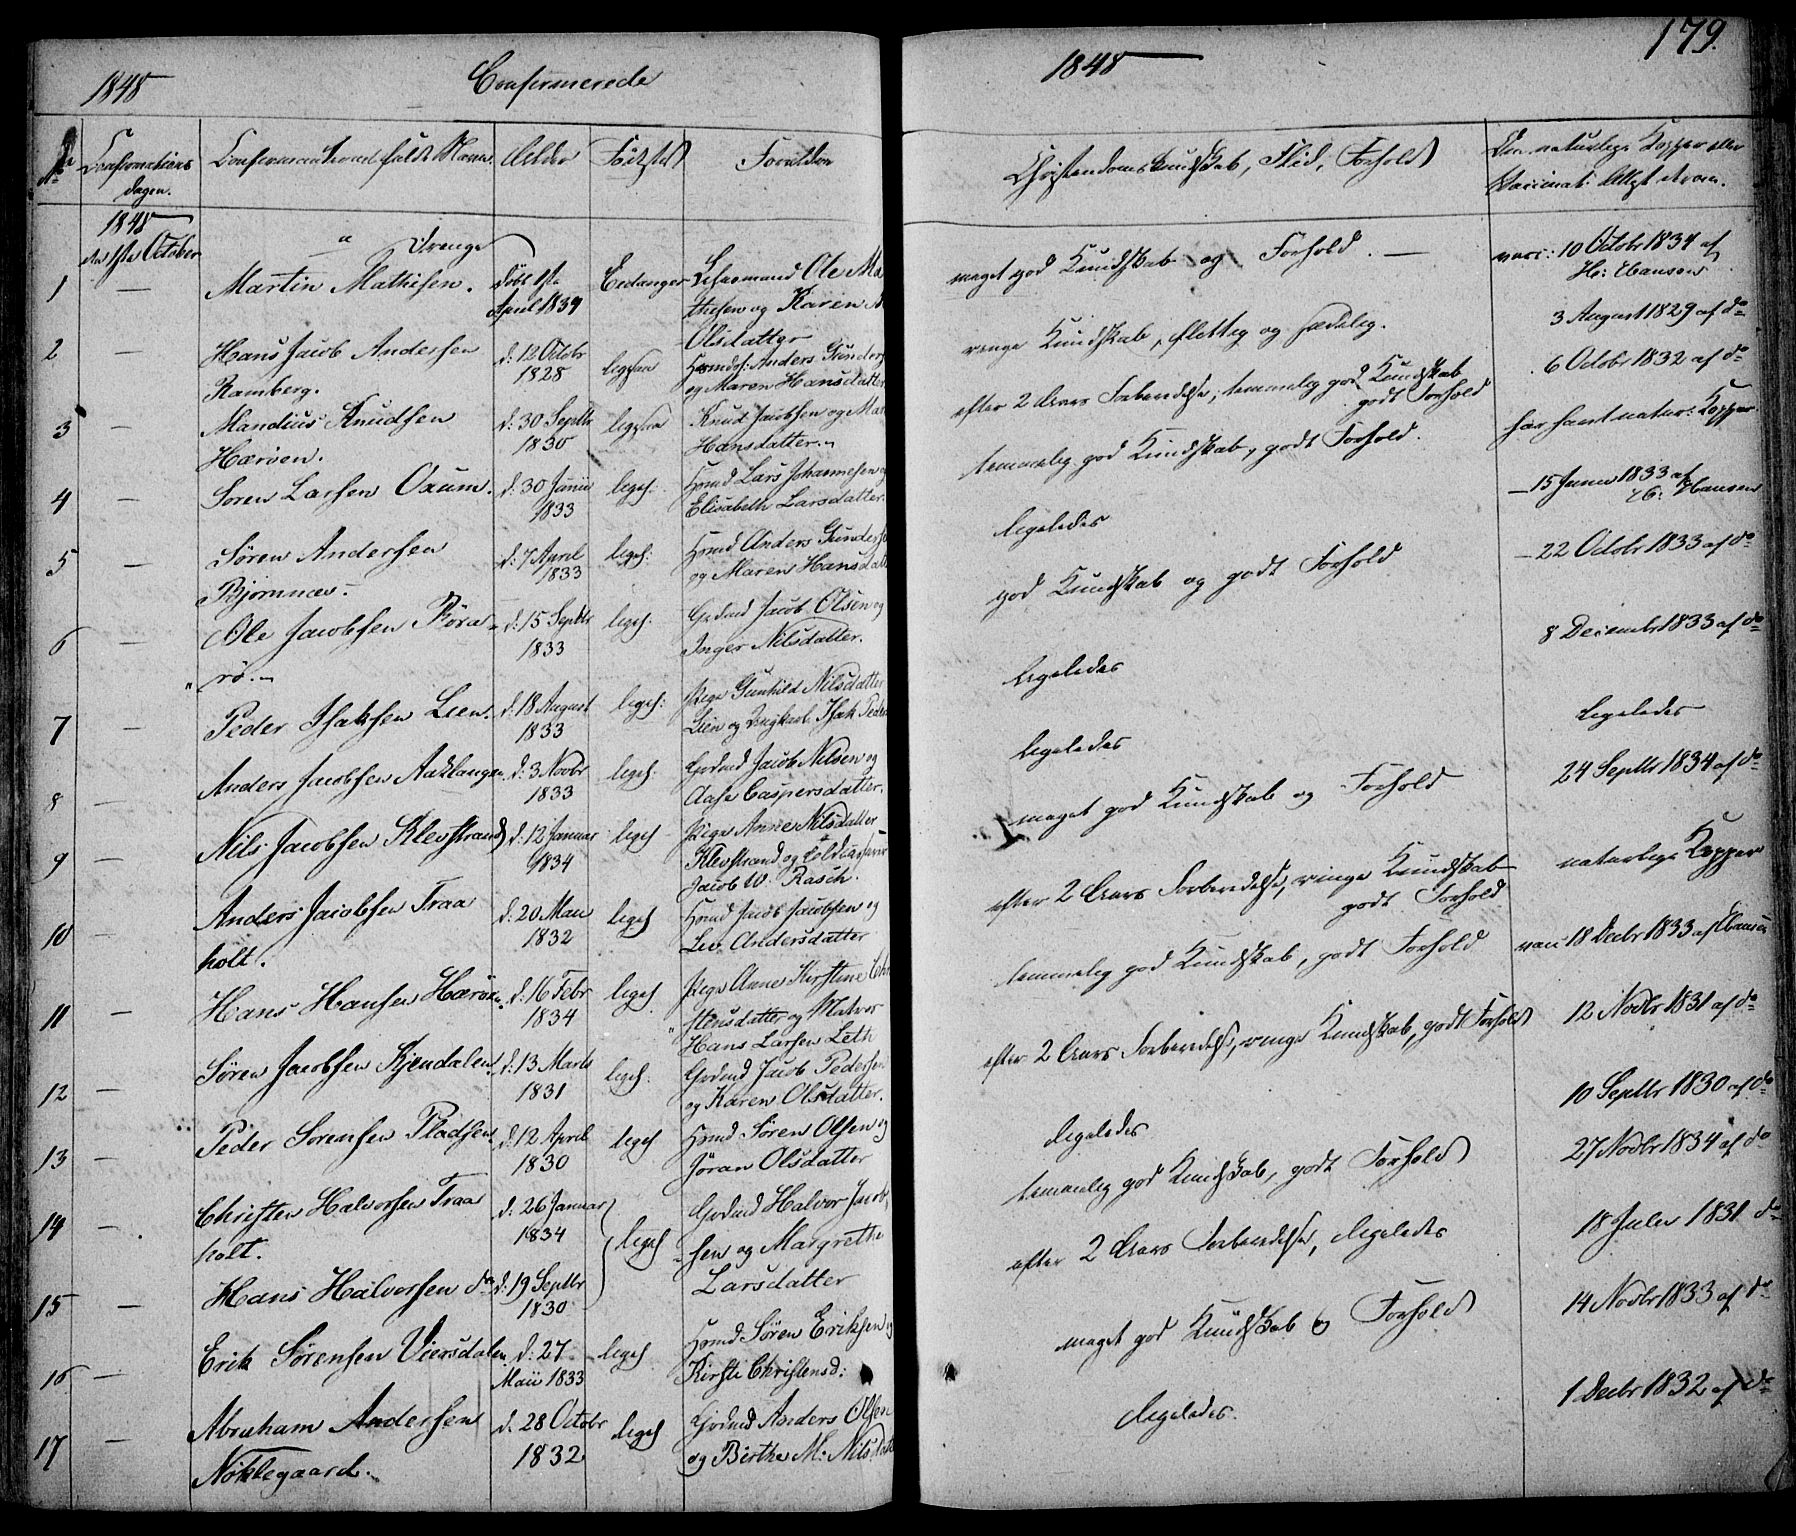 1848
Confirmerede
No
Confirmations
dagen.
Confirmantens fulde Navn
Alder
Fødsted
Forældre
1848
den 1ste October
" Drenge
1 — Martin Mathisen. Døbt 1ste Eidanger Ole Ma
April 1834 thisen og Karen
Olsdatter
2 — Hans Jacob Andersen d: 12 Octobr ligesaa Hmd: Anders Gunders
Ramberg. 1828 og Maren Hansdatter
3 — Mandius Knudsen d: 30 Septbr ligesaa Knud Jacobsen og Mar
Hærøen. 1830 Hansdatter.
4 — Søren Larsen Oxum. d: 30 Junii liges: Hmd Lars Johannesen og
1833 Elisabeth Larsdatter.
5 — Søren Andersen d: 7 April liges: Hmd Anders Gunders
Bjørnnæs. 1833 og Maren Hansdatt
6 — Ole Jacobsen Røra- d: 15 Septbr liges: Grdmd Jacob Olsen og
rø. 1833 Inger Nilsdatter.
7 — Peder Isaksen Lien. d: 18 August liges: Pige Gunhild Nilsdatter
1833 Lien og Ungkarl Isak Peder
8 — Anders Jacobsen Aaklungen d: 3 Novbr liges. Grdmd Jacob Nilsen og
1833 Aase Caspersdatter.
9 — Nils Jacobsen Klevstrand d: 12 Januar liges Pige Anne Nilsdatter
1834 Klevstrand og
Jacob W. Rasch.
10 — Anders Jacobsen Traa d: 20 Maii liges Hmd Jacob Jacobsen og
holt. 1832 Liv Andersdatter
11 — Hans Hansen Hærøen d: 16 Febr liges. Pige Anne Kirstine Chri
1834 stensdatter og Matros
Hans Larsen Leth
12 — Søren Jacobsen Kjendalen d: 13 Marts liges. Grdmd Jacob Pedersen
1831 og Karen Olsdatter.
13 — Peder Sørensen Pladsen d: 12 April liges Hmd. Søren Olsen og
1830 Jøran Olsdatter
14 — Christen Halvorsen Traa d: 26 Januar liges Grdmd Halvor Jacob
holt. 1834 sen og Margrethe
15 — Hans Halvorsen do d: 19 Septbr Larsdatter
1830
16 — Erik Sørensen Viersdalen d: 27 liges. Hmd. Søren Eriksen og
Maii 1833 Kirsti Christensd:
17 Abraham Andersen d: 28 Octobr liges Grdmd Anders Olsen
Nøklegaard. 1832 og Birthe M: Nilsdatt
1848
179.
Christendoms Kundskab, Flid, Forhold
Den naturlige Kopper eller
Vaccinat: Attest
meget god Kundskab og Forhold. — vacc: 10 Octobr 1834 af
H: Hansen
ringe Kundskab, flittig og sædelig. 3 August 1829 af do
efter 2 Aars Forberedelse, temmelig god Kundskab 6 Octobr 1832 af do
godt Forhold
temmelig god Kundskab, godt Forhold. har havt natur: Kopper
ligeledes — 15 Junii 1833 af
H: Hansen
god Kundskab og godt Forhold — 22 Octobr 1833 af do
ligeledes 8 Decembr 1833 af do
ligeledes ligeledes
meget god Kundskab og Forhold 24 Septbr 1834 af do
efter 2 Aars Forberedelse, ringe Kundskab naturlige Kopper
godt Forhold
temmelig god Kundskab, godt Forhold vacc 18 Decbr 1833 af Hansen
efter 2 Aars Forberedelse, ringe Kundskab, godt Forhold 12 Novbr 1831 af do
ligeledes 10 Septbr 1830 af do
temmelig god Kundskab, godt Forhold 27 Novbr 1834 af do
efter 2 Aars Forberedelse, ligeledes 18 Julii 1831 do
meget god Kundskab og Forhold 14 Novbr 1833 af do
ligeledes. 1 Decbr 1832 af do